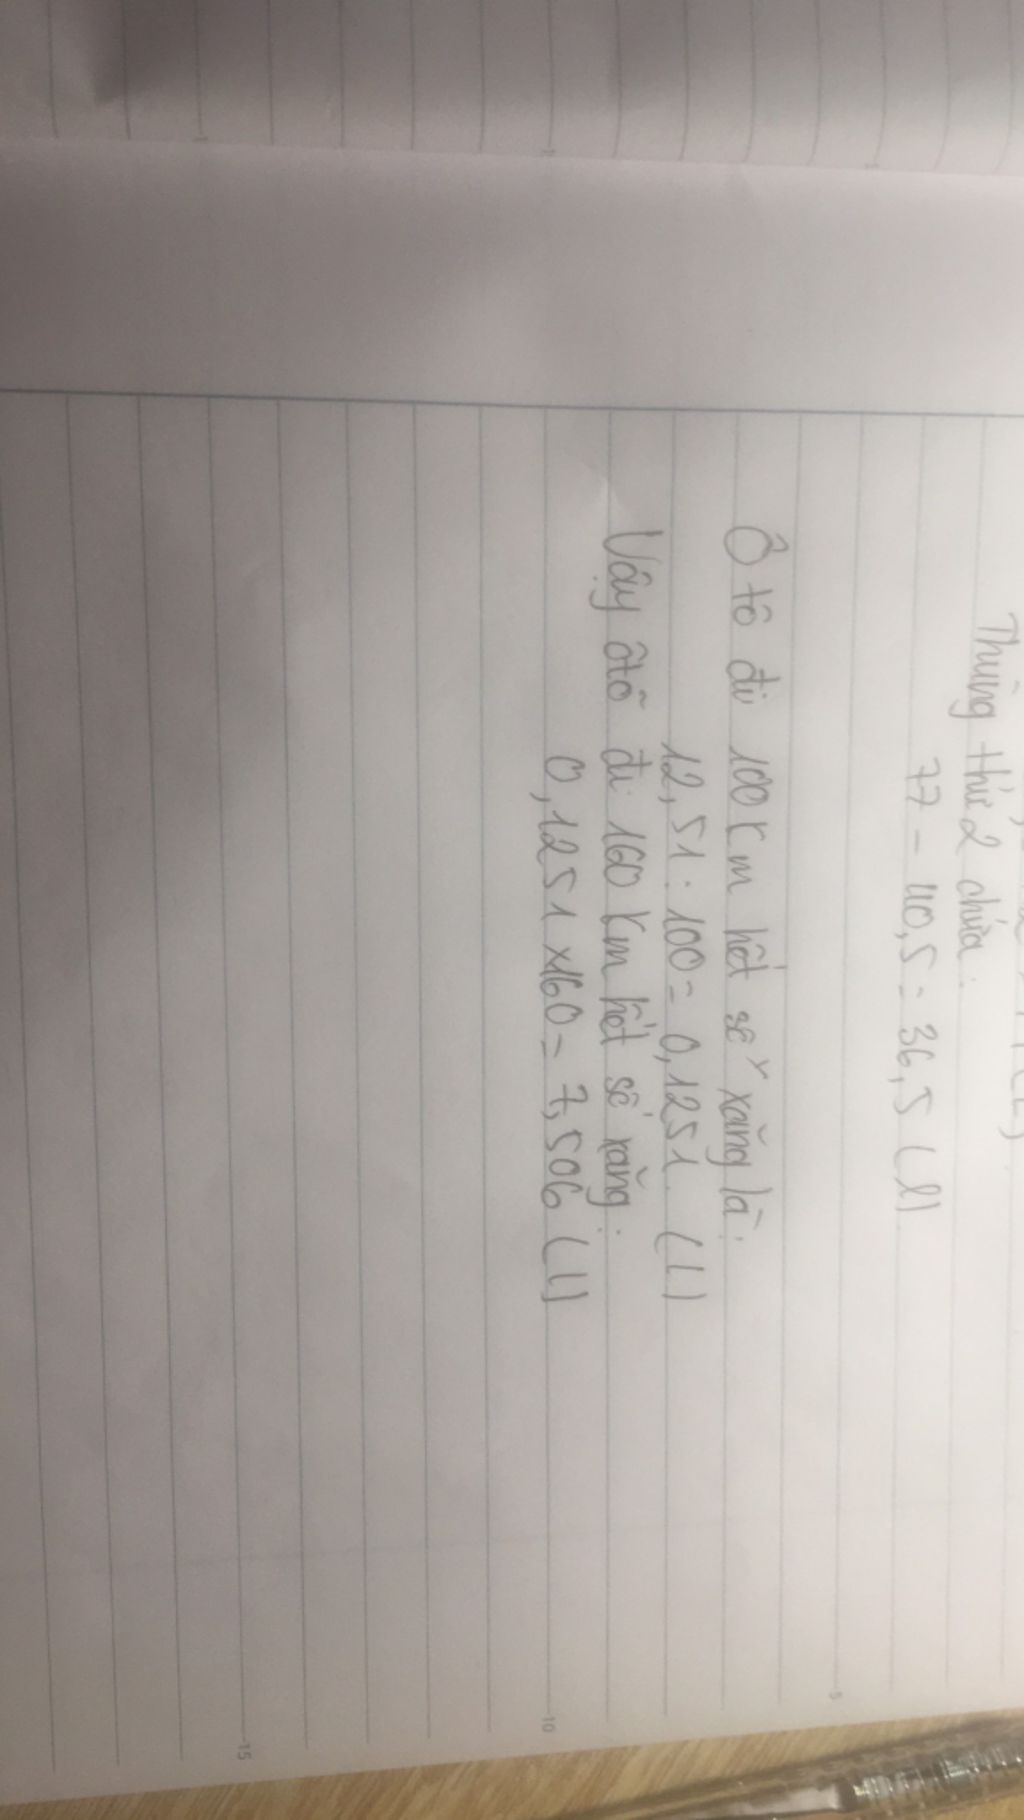 Thùng thứ 2 chứa:
77 - 40,5 = 36,5 (l)
Ô tô đi 100 km hết số xăng là:
12,51 : 100 = 0,1251. (L)
Vậy ôtô đi 160 km hết số xăng:
0,1251 x 160 = 7,506 (L)
5
10
15